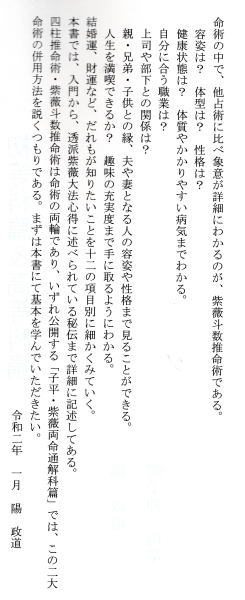 命術の中で、他占術に比べ象意が詳細にわかるのが、紫薇斗数推命術である。
容姿は？　体型は？　性格は？
健康状態は？　体質やかかりやすい病気までわかる。
自分に合う職業は？
上司や部下との関係は？
親・兄弟・子供との縁、夫や妻となる人の容姿や性格まで見ることができる。
人生を満喫できるか？　趣味の充実度まで手に取るようにわかる。
結婚運、財運など、だれもが知りたいことを十二の項目別に細かくみていく。
本書では、入門から、透派紫薇大法心得に述べられている秘伝まで詳細に記述してある。
四柱推命術・紫薇斗数推命術は命術の両輪であり、いずれ公開する「子平・紫薇両命通解科篇」では、この二大
命術の併用方法を説くつもりである。まずは本書にて基本を学んでいただきたい。
令和二年　一月　陽　政道